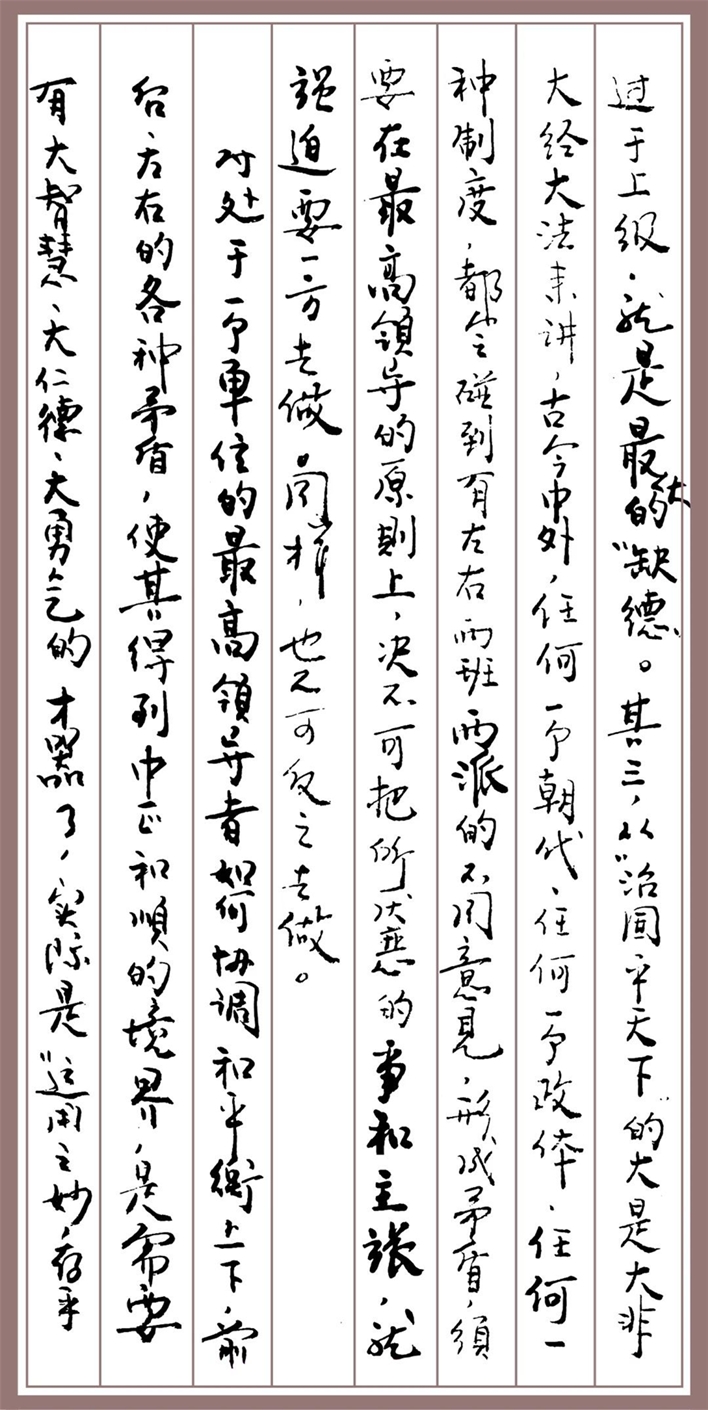 过于上级，就是最大的“缺德”。其三，以“治国平天下”的大是大非
大经大法来讲，古今中外，任何一个朝代、任何一个政体、任何一
种制度，都会碰到有左右两班两派的不同意见，形成矛盾，须
要在最高领导的原则上，决不可把所厌恶的事和主张，就
强迫要一方去做。同样，也不可反之去做。
对处于一个单位的最高领导者如何协调和平衡上下、前
后、左右的各种矛盾，使其得到中正和顺的境界，是需要
有大智慧、大仁德、大勇气的才器了，实际是“运用之妙，存乎